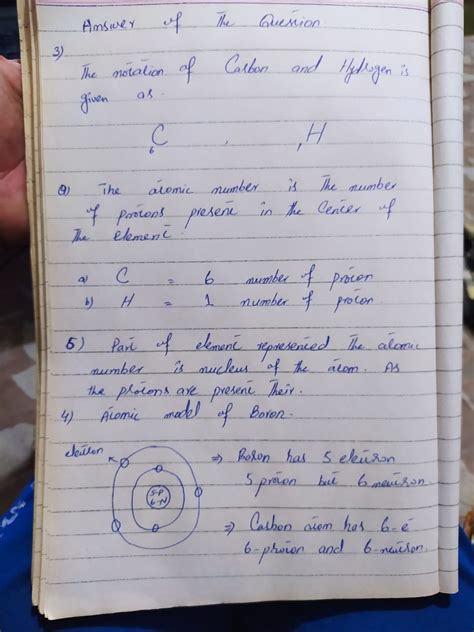 Answer of The Question
3)
The notation of Carbon and Hydrogen is
given as.
₆C , ₁H
Q) The atomic number is The number
of protons present in the Center of
The element.
a) C = 6 number of proton
b) H = 1 number of proton
5) Part of element represented The atomic
number is nucleus of the atom. As
the protons are present Their.
4) Atomic model of Boron.
electron
5-P
6-N
⇒ Boron has 5 electron
5 proton but 6 neutron
⇒ Carbon atom has 6-e
6-proton and 6-neutron.